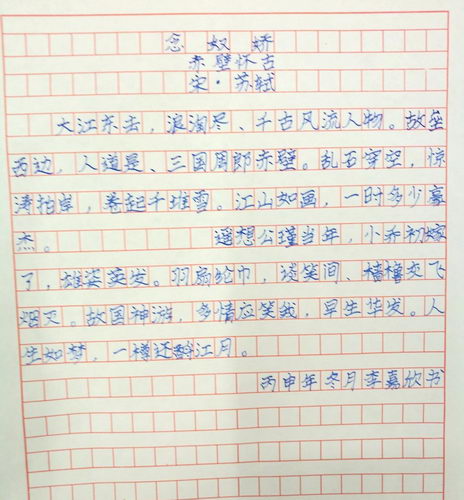 念奴娇
赤壁怀古
宋·苏轼
大江东去，浪淘尽、千古风流人物。故垒
西边，人道是、三国周郎赤壁。乱石穿空，惊
涛拍岸，卷起千堆雪。江山如画，一时多少豪
杰。 遥想公瑾当年，小乔初嫁
了，雄姿英发。羽扇纶巾，谈笑间、樯橹灰飞
烟灭。故国神游，多情应笑我，早生华发。人
生如梦，一樽还酹江月。
丙申年冬月李嘉欣书